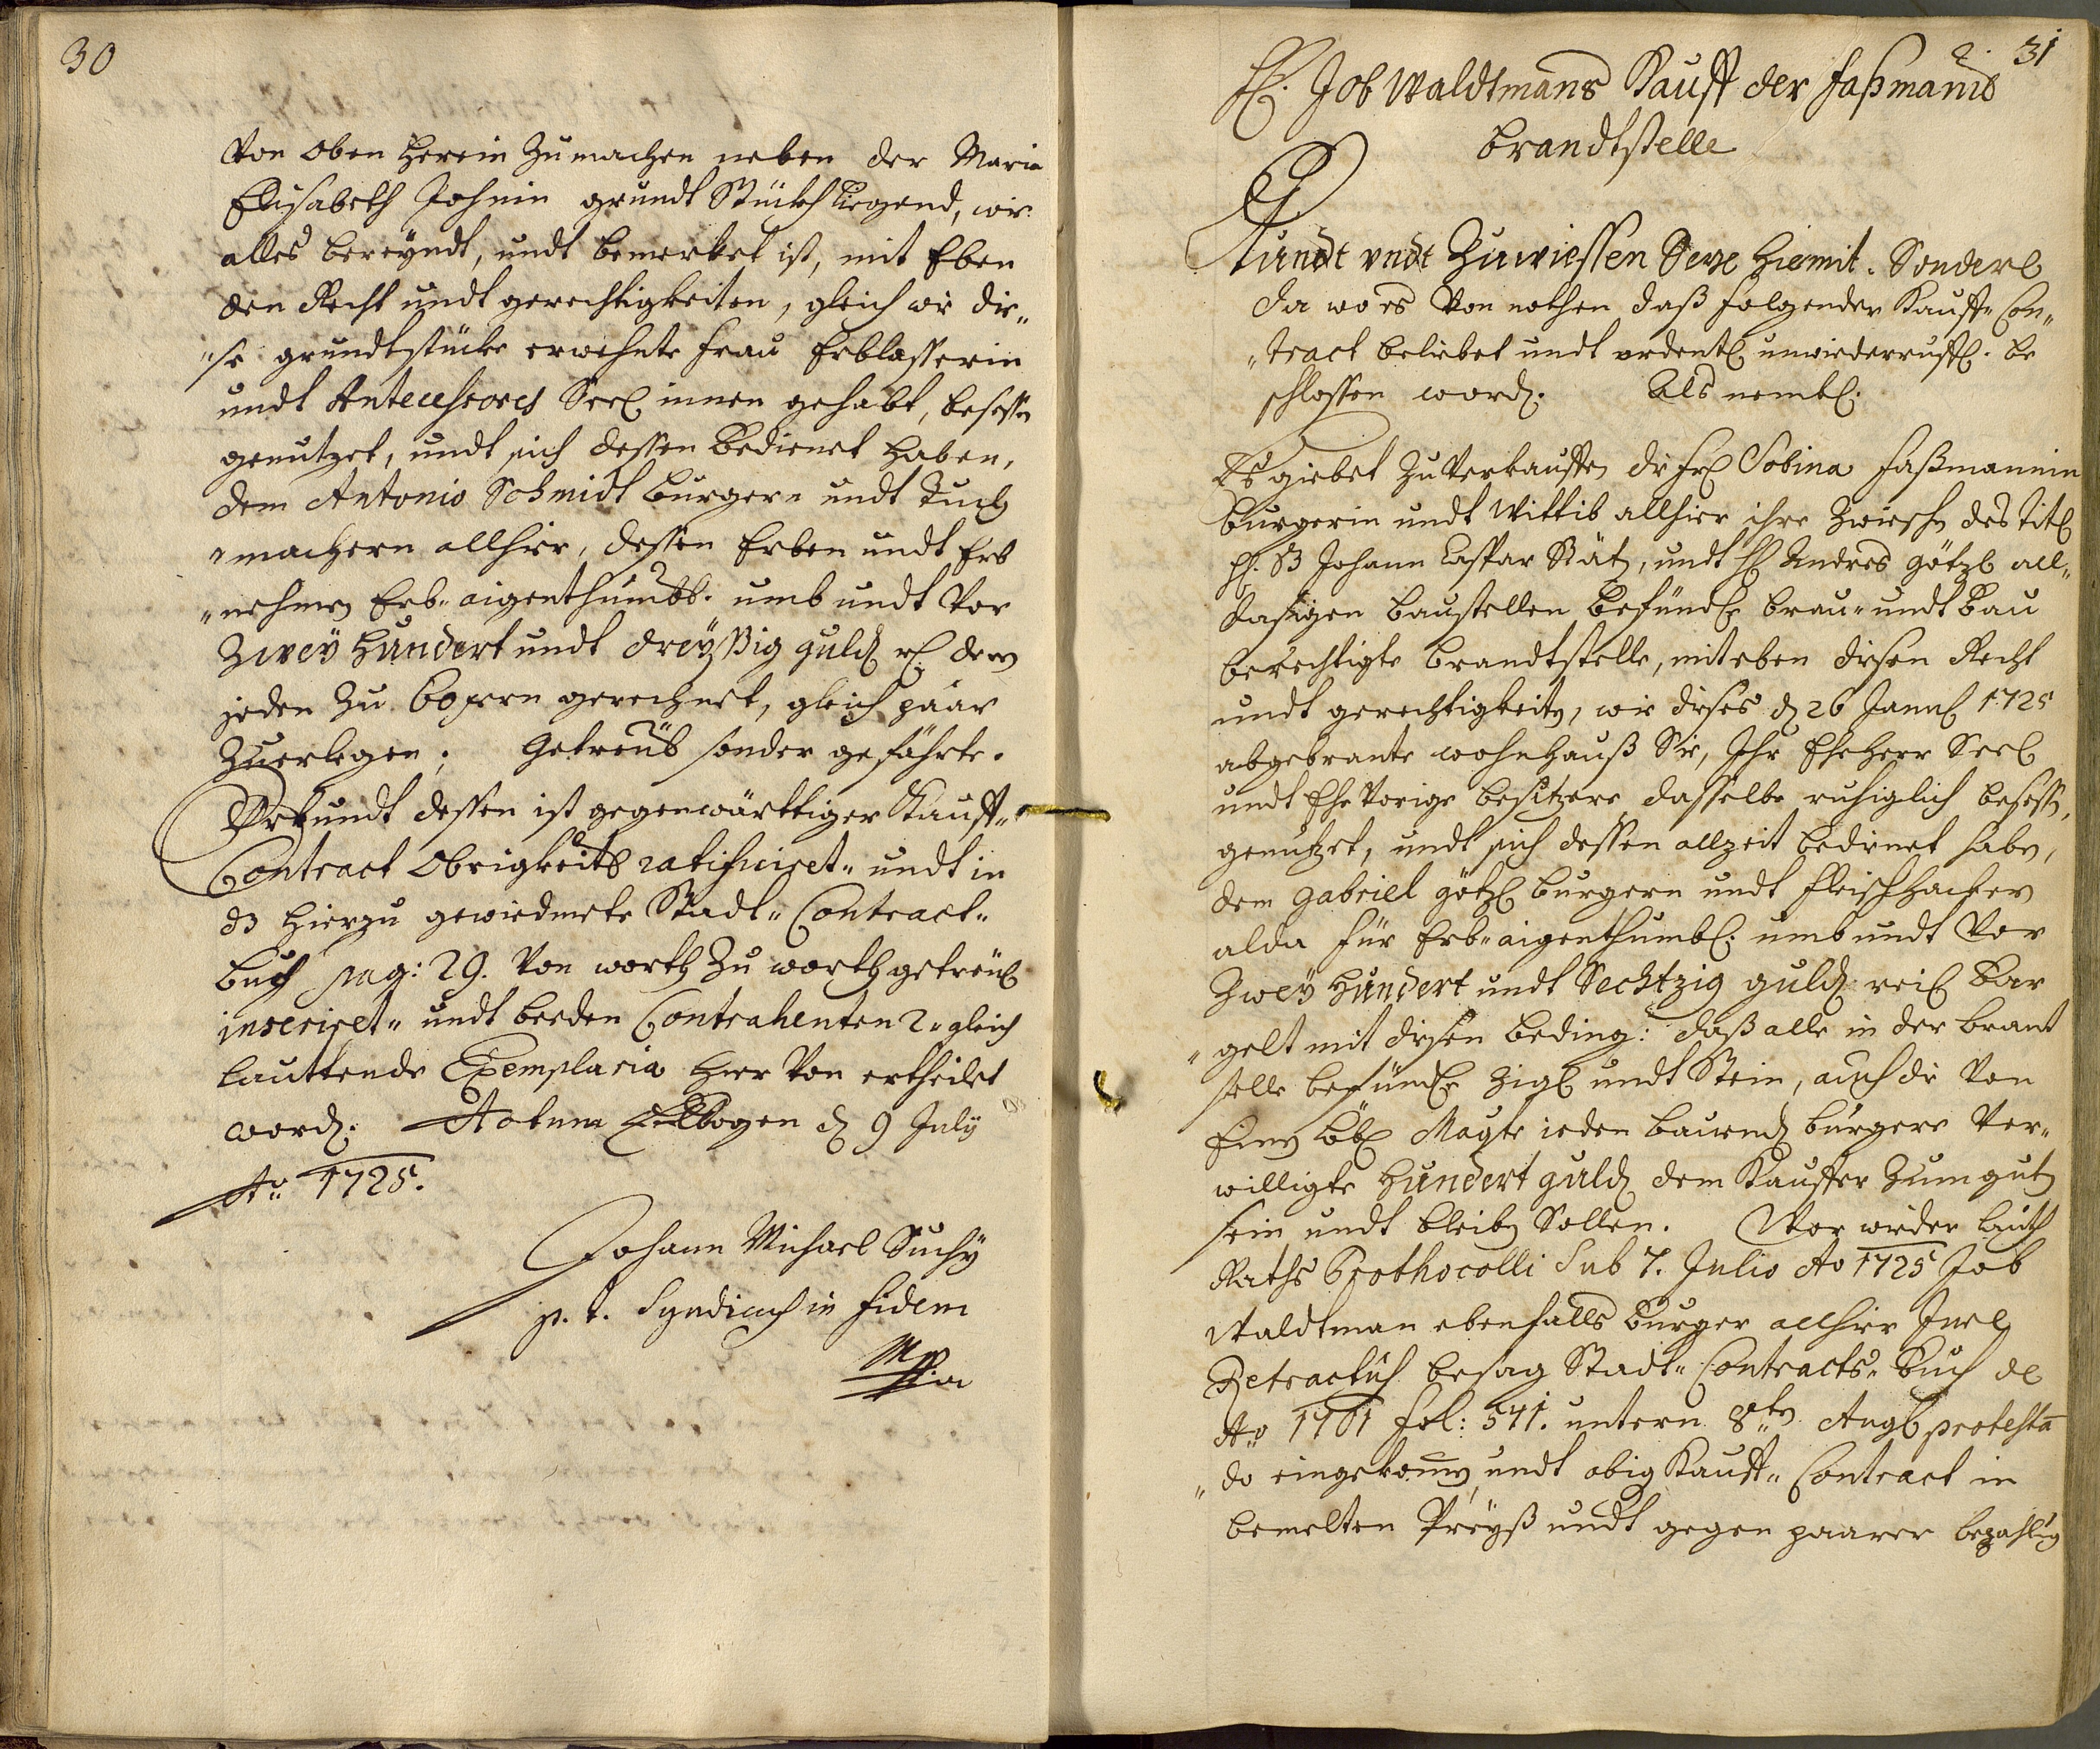 30
von oben herein zumachen neben der Maria
Elisabeth Johnin grundt Stückh liegend, wie
alles bereyndt, undt bemerket ist, mit Eben
den Recht undt gerechtigkeiten, gleich wie die„
„se grundtstücke erwehnte Frau Erblasserin
undt Antecessores Seel innen gehabt, besessen
genutzet, undt sich dessen bedienet haben,
dem Antonio Schmidt burgern undt Tuch
„machern allhier, dessen Erben undt Erb
„nehmen Erb„aigenthumbl. umb undt vor
Zwey Hundert undt dreyßig guld dern
jeden zu 60 xern gerechnet, gleich paar
Zuerlegen; Getreül sonder gefährte.
Uhrkundt dessen ist gegenwärttiger Kauff„
Contract Obrigkeitl ratificiret„ undt in
dz hierzu gewiedmete Stadt„Contract„
buch pag: 29. von worth zu worth getreül
inseriret„ undt beeden Contrahenten 2„gleich
lauttende Exemplaria hier von ertheilet
word. Actum Ellbogen d 9 July
Ao 1725.
Johann Michael Suchy
p. t. Syndicus in fidem
Mppria
31
H. Job Waldtmans Kauff der Faßmanis
brandtstelle
Kundt undt Zuwiessen Seye hiemit. Sonderl
da wo es von nothen daß folgender Kauff„Con„
„tract beliebet undt ordentl unwiederruffl. be
schlossen word. Als nembl.
Es giebet zu verkauffen die Fr Sobina Faßmannin
burgerin undt Wittib allhier ihre zwiesch des Titl
H. Johann Caspar Stätz, undt H Andres götzl all„
dasigen baustellen befündl brau„undt bau
berechtigte brandtstelle, mit eben diesen Recht
undt gerechtigkeiten, wie dieses d 26 Janu 1725
abgebrante wohnhauß Sie, Ihr Eheherr Seel
undt Ehevorige besitzere dasselbe ruhiglich besess,
genutzet, undt sich dessen allzeit bedienet haben,
dem Gabriel götzl burgern undt fleischhacker
alda für Erb„aigenthumbl. umb undt vor
Zwey Hundert undt Sechtzig guld rei bar
„gelt mit diesen beding: daß alle in der brant
stelle befündl Zigl undt Stein, auch die von
Einem löbl Magte ieden bauend burgere ver„
willigte Hundert guld dem Kauffer zum gut
sein undt bleiben Sollen. Wor wieder lauth
Raths Prothocolli Sub 7. Julio Ao 1725 Job
Waldtman ebenfalls burger allhier Jure
Retractus besag Stadt„Contracts„buch de
Ao 1701 fol: 571. untern 8ten Aug protesta
„do eingekomen, undt obig Kauff„Contract in
bemelten Preyß undt gegen paarer bezahlug